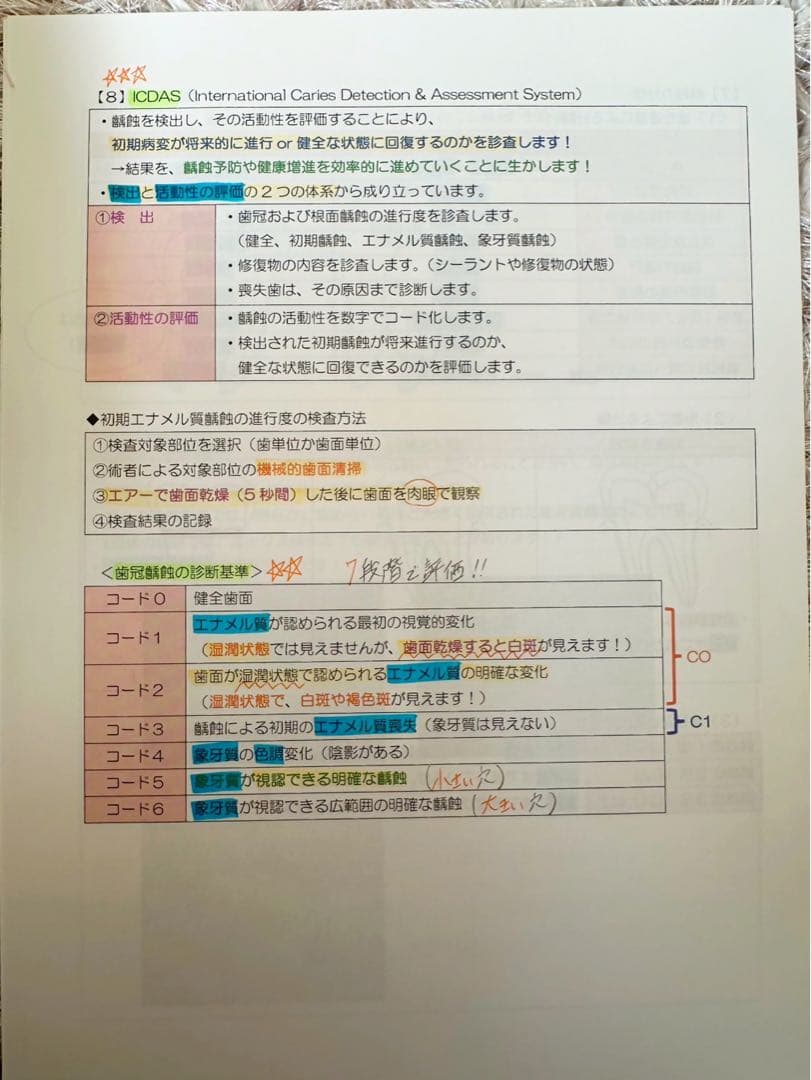 ☆☆☆
【8】ICDAS（International Caries Detection & Assessment System）
・齲蝕を検出し、その活動性を評価することにより、
初期病変が将来的に進行 or 健全な状態に回復するのかを診査します！
→結果を、齲蝕予防や健康増進を効率的に進めていくことに生かします！
・検出と活動性の評価の2つの体系から成り立っています。
①検　出
・歯冠および根面齲蝕の進行度を診査します。
（健全、初期齲蝕、エナメル質齲蝕、象牙質齲蝕）
・修復物の内容を診査します。（シーラントや修復物の状態）
・喪失歯は、その原因まで診断します。
②活動性の評価
・齲蝕の活動性を数字でコード化します。
・検出された初期齲蝕が将来進行するのか、
健全な状態に回復できるのかを評価します。
◆初期エナメル質齲蝕の進行度の検査方法
①検査対象部位を選択（歯単位か歯面単位）
②術者による対象部位の機械的歯面清掃
③エアーで歯面乾燥（5秒間）した後に歯面を肉眼で観察
④検査結果の記録
＜歯冠齲蝕の診断基準＞ ☆☆ 7段階で評価!!
コード0　健全歯面
コード1　エナメル質が認められる最初の視覚的変化
（湿潤状態では見えませんが、歯面乾燥すると白斑が見えます！）
コード2　歯面が湿潤状態で認められるエナメル質の明確な変化
（湿潤状態で、白斑や褐色斑が見えます！）
CO
コード3　齲蝕による初期のエナメル質喪失（象牙質は見えない）　C1
コード4　象牙質の色調変化（陰影がある）
コード5　象牙質が視認できる明確な齲蝕（小さい穴）
コード6　象牙質が視認できる広範囲の明確な齲蝕（大きい穴）